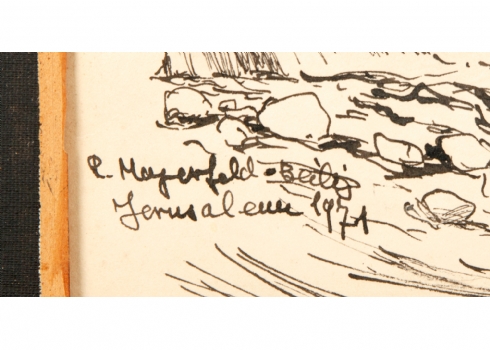 R. Mayerfeld-Beilig
Jerusalem 1971